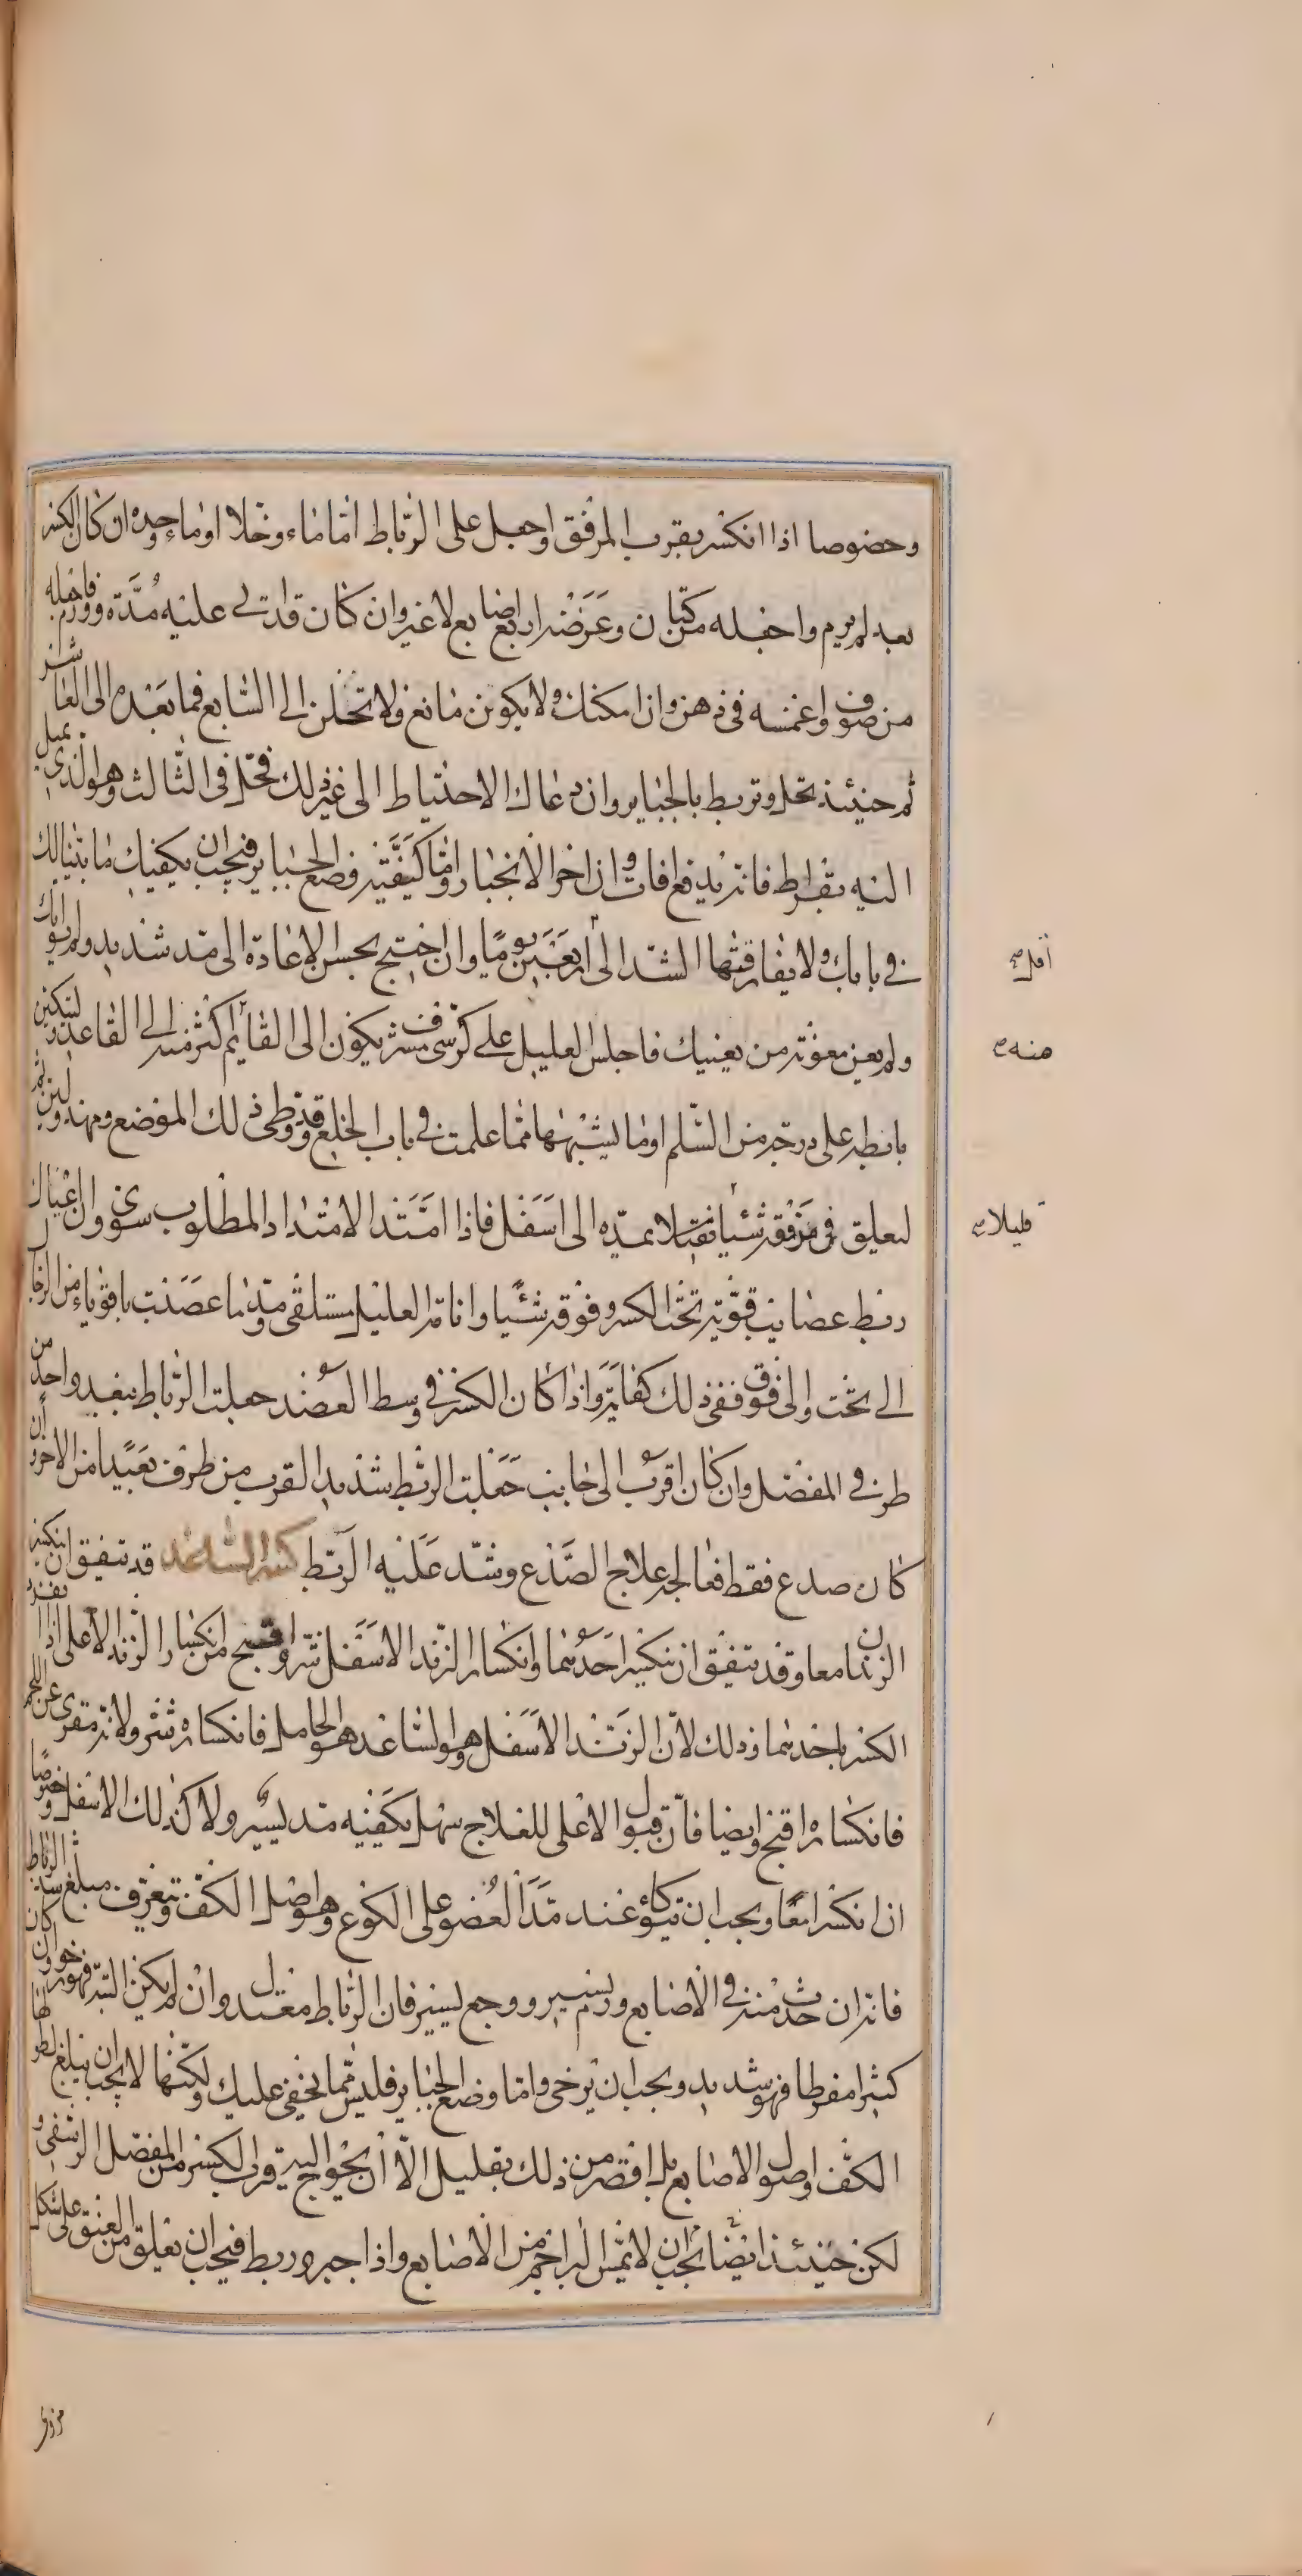 وخصوصا اذا انكسر بقرب المرفق واجعل على الرباط اما ماء وخلا او ماء وحده ان كان الكسر
بعد لم يرم واجعله من كتان وعرضه اربع اصابع لا غير وان كان قد اتى عليه مدة وورم فاجعله
من صوف واغمسه فى دهن وان امكنك ولا يكون مانع ولا تحلن الى السابع فما بعده الى العاشر
ثم حينئذ تحل وتربط بالجباير وان دعاك الاحتياط الى غير ذلك فحل فى الثالث وهو الذى يميل
اليه بقراط فانه يدفع افات وان اخر الانجبار واما كيفية وضع الجباير فيجب ان يكفيك ما بيناه لك
فى بابك ولا يفارقنها الشد الى اربعين يوما وان احتيج بحسن الاعادة الى مد شديد ولم يواتك
ولم يعن معونة من يعنيك فاجلس العليل على كرسى مشرف يكون الى القايم اكثر منه الى القاعد وليكن
بابطه على درجة من السلم او ما يشبهها مما علمت فى باب الخلع وقد وطى ذلك الموضع ومهد ولين ثم
ليعلق فى مرفقه شيا ثقيلا يمده الى اسفل فاذا امتد الامتداد المطلوب سوى وان اغناك
ربط عصايب قوية تحت الكسر وفوقه شيا وانامة العليل مستلقى ومد ما عصبت باقوياء من الرجال
الى تحت والى فوق ففى ذلك كفاية واذا كان الكسر فى وسط العضد جعلت الرباط ببعد واحد من
طرفى المفصل وان كان اقرب الى جانب جعلت الربط شديد القرب من طرف بعيدا من الاخر وان
كان صدع فقط فعالجه علاج الصدع وشد عليه الربط كسر الساعد قد يتفق ان ينكسر
الزندان معا وقد يتفق ان ينكسر احدهما وانكسار الزند الاسفل شر واقبح من انكسار الزند الاعلى اذا انفرد
الكسر باحدهما وذلك لان الزند الاسفل هو الساعد وهو الحامل فانكساره شر ولانه متعرى عن اللحم
فانكساره اقبح وايضا فان قبول الاعلى للعلاج سهل يكفيه مد يسير ولا كذلك الاسفل وخصوصا
ان انكسرا معا ويجب ان يتوكأ عند مد العضو على الكوع وهو اصل الكف وتعرف مبلغ شد الرباط
فانه ان حدث منه فى الاصابع ورم يسير ووجع يسير فان الرباط معتدل وان لم يكن البتة فهو رخو وان كان
كثيرا مفرطا فهو شديد ويجب ان يرخى واما وضع الجباير فليس مما يخفى عليك ولكنها لا يجب ان يبلغ طولها
الكف واصول الاصابع بل اقصر من ذلك بقليل الا ان يحوج اليه قرب الكسر من المفصل الرسغى و
لكن حينئذ ايضا يجب ان لا يمس البراجم من الاصابع واذا جبر وربط فيجب ان يعلق من العنق على شكل
اقل صح
منه صح
قليلا صح